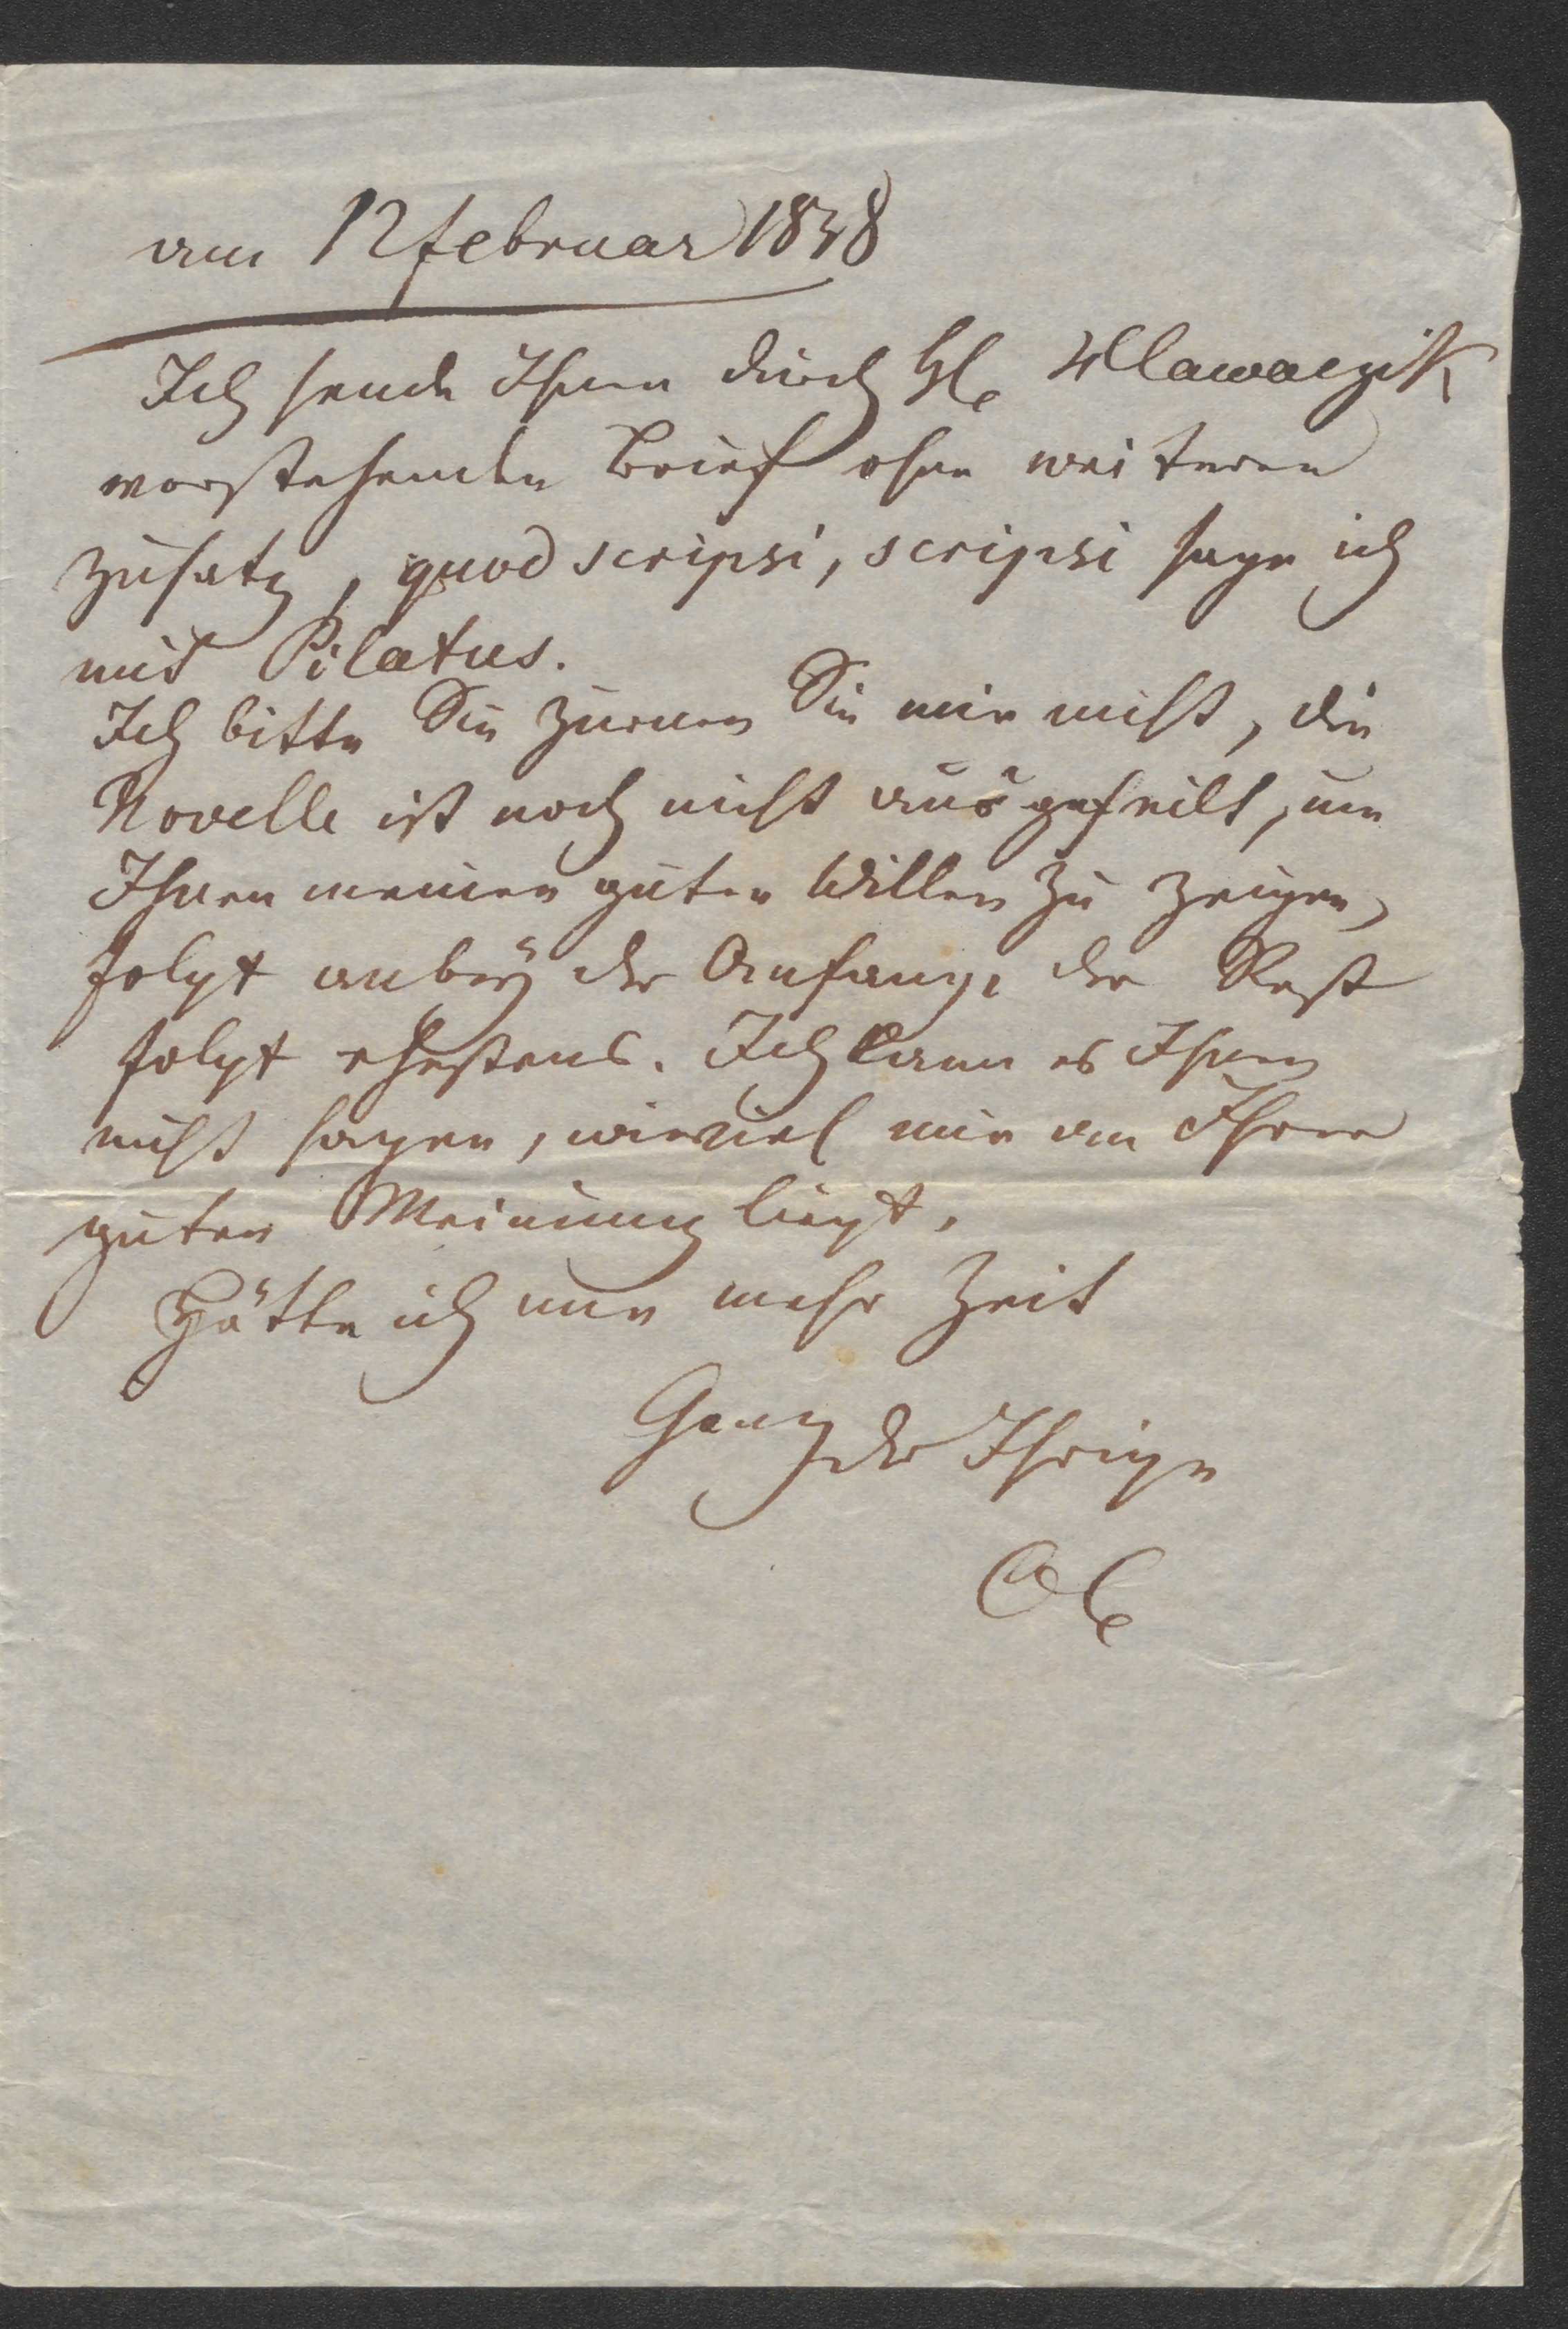 am 12 februar 1838
Ich sende Ihnen durch H. Hlawaczik
vorstehenden Brief ohne weiteren
Zusatz, quod scripsi, scripsi sage ich
mit Pilatus.
Ich bitte Sie zürnen Sie mir nicht, die
Novelle ist noch nicht ausgefeilt, um
Ihnen meinen guten Willen zu zeigen,
folgt anbey der Anfang, der Rest
folgt ehestens. Ich kann es Ihnen
nicht sagen, wieviel mir an Ihrer
guten Meinung liegt.
Hätte ich nur mehr Zeit
Ganz der Ihrige